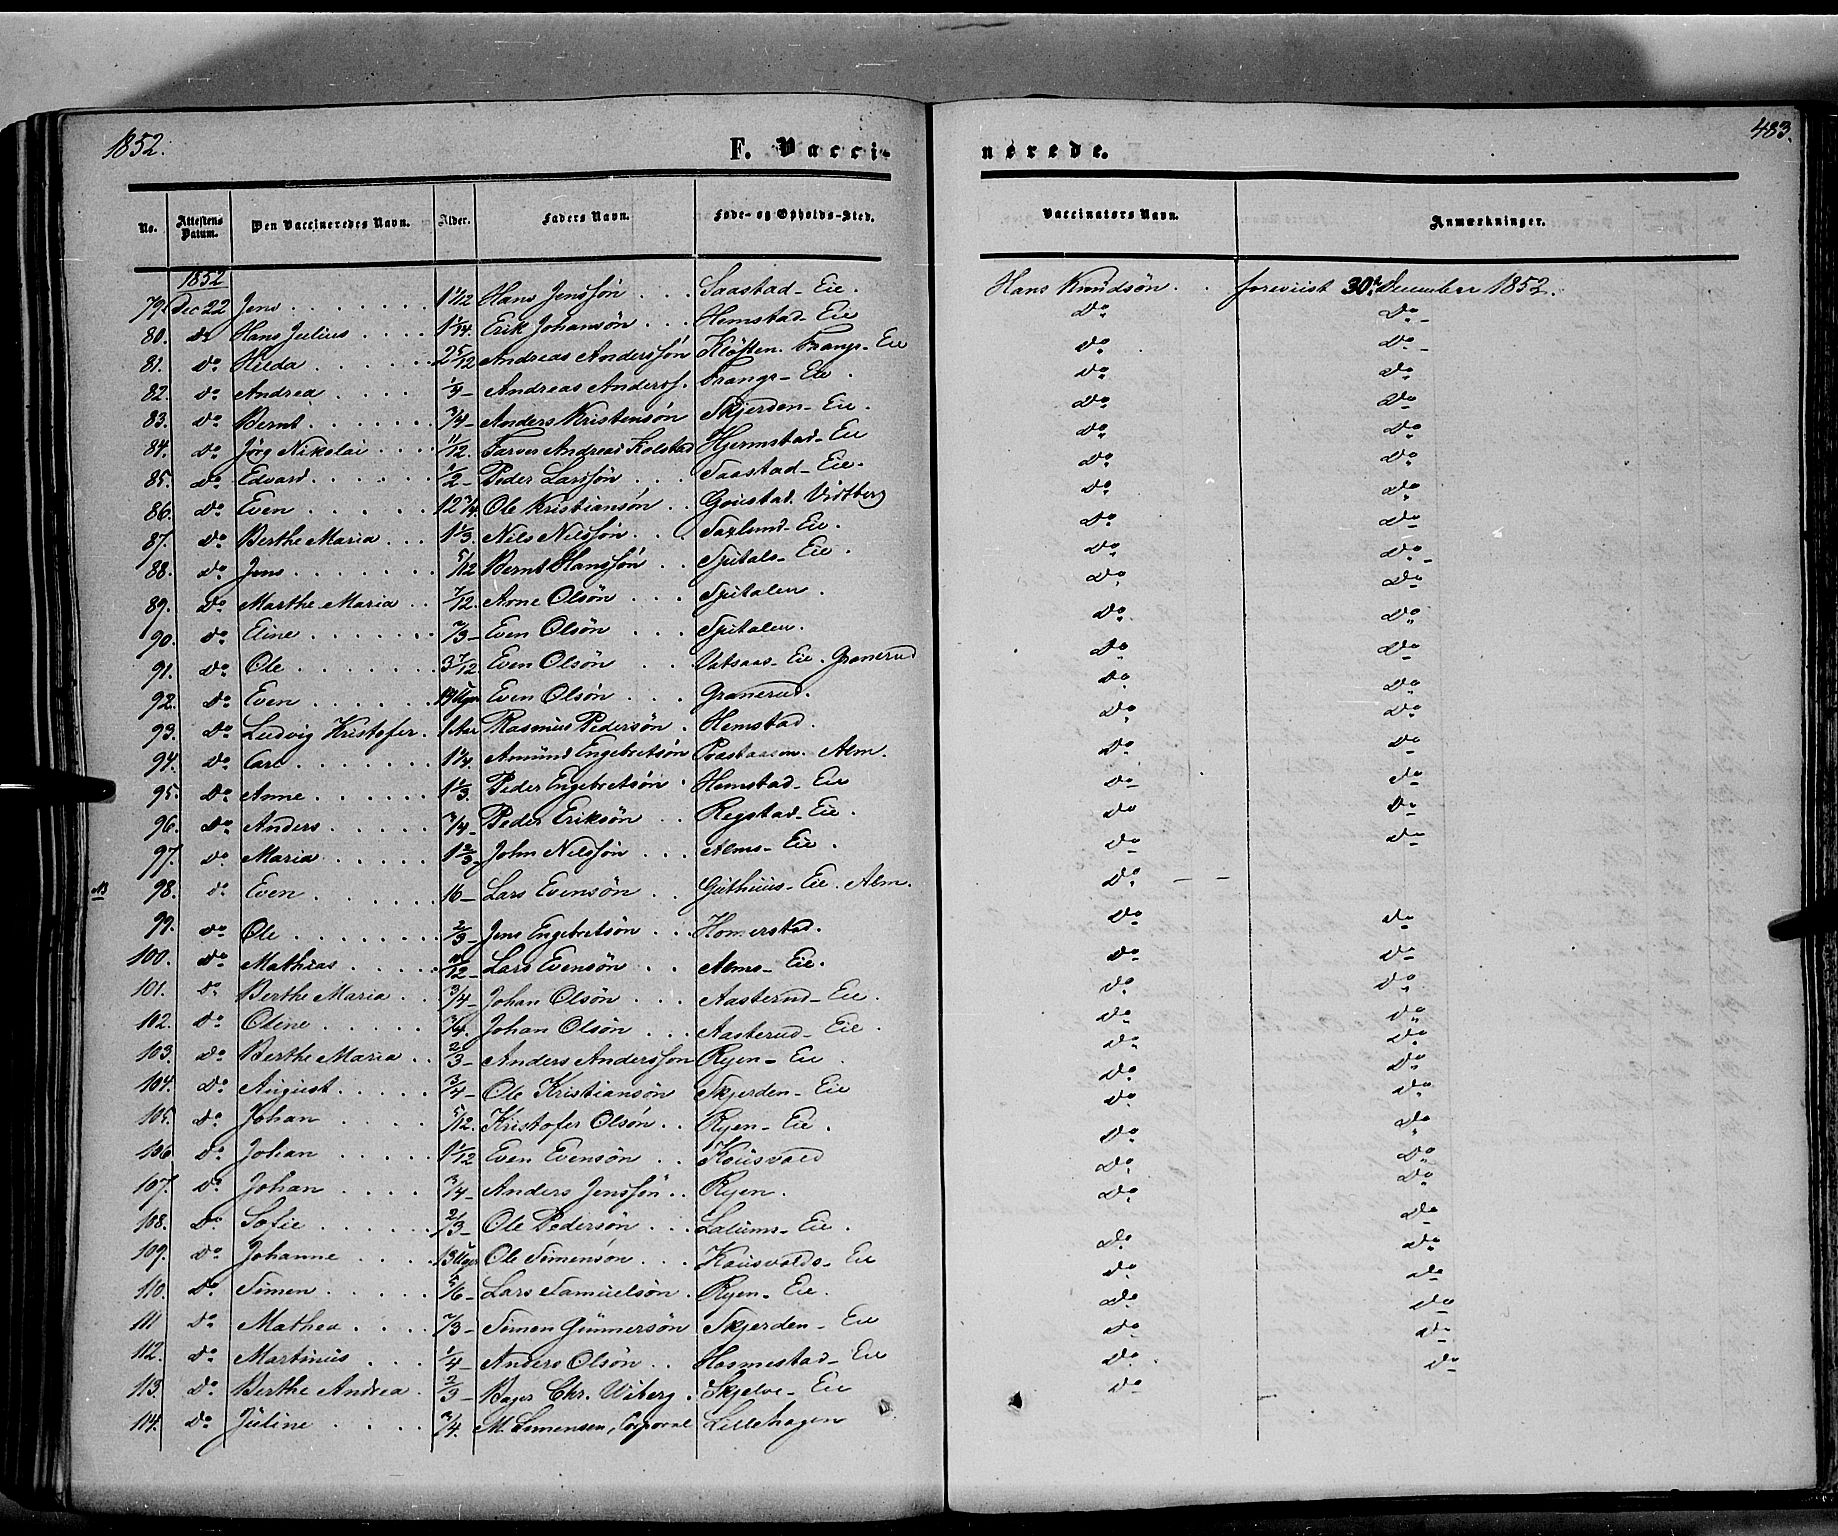 1852.
F. Vacci-
nerede.
483.
No. Attestens Datum. Den Vaccineredes Navn. Alder. Faders Navn. Føde- og Opholds-Sted. Vaccinators Navn. Anmærkninger.
1852
79. Dec 22 Jens 1 1/12 Hans Jenssøn Saastad- Eie. Hans Knudsøn foreviist 30te December 1852.
80. do Hans Julius 1 1/4 Erik Johansøn Hemstad- Eie Do Do
81. Do Hilda 2 5/12 Andreas Anderssøn Kløften. Frangs- Eie Do Do
82. Do Andrea Andreas Anderss. Frangs- Eie. Do Do
83. Do Bernt 3/4 Anders Kristensøn Skjerden- Eie. Do Do
84. Do Jørg Nikolai 11/12 Farver Andreas Kolstad Hjermstad- Eie Do Do
85. Do Edvard 1/2 Peder Larssøn Saastad- Eie. Do Do
86. Do Even 12 3/4 Ole Kristiansøn Do Do
87. Do Berthe Maria 1 1/3 Nils Nilssøn Saxlund- Eie. Do Do
88. Do Jens 5/12 Bernt Hanssøn Spitals- Eie. Do Do
89. Do Marthe Maria 7/12 Arne Olsøn Spitalen. Do Do
90. Do Eline 2/3 Even Olsøn Spitalen. Do Do
91. Do Ole 3 7/12 Even Olsøn Vabsaas- Eie. Granerud Do Do
92. Do Even 13 Uger Even Olsøn Granerud. Do Do
93. Do Ludvig Kristofer 1 Aar Rasmus Pedersøn Hemstad. Do Do
94. Do Carl 1 1/4 Amund Engebretsøn Alm. Do Do
95. Do Anne 1 1/3 Peder Engebretsøn Hemstad- Eie Do Do
96. Do Anders 3/4 Peder Eriksøn Regstad- Eie. Do Do
97. Do Maria 1 2/3 John Nilssøn Alms- Eie. Do Do
98. Do Even 16 Lars Evensøn Guthuus- Eie. Alm. Do
99. Do Ole 2/3 Jens Engebretsøn Homerstad. Do Do
100. Do Mathias Lars Evensøn Alms- Eie. Do Do
101. Do Berthe Maria 3/4 Johan Olsøn Aasterud- Eie. Do Do
102. Do Oline 3/4 Johan Olsøn Aasterud- Eie. Do Do
103. Do Berthe Maria 2/3 Anders Anderssøn Ryen- Eie Do Do
104. Do August 3/4 Ole Kristiansøn Skjerden- Eie Do Do
105. Do Johan 5/12 Kristofer Olsøn Ryen- Eie. Do Do
106 Do Johan 1 1/12 Even Evensøn Kousvold Do Do
107. Do Johan 3/4 Anders Jenssøn Ryen. Do Do
108. Do Sofie 2/3 Ole Pedersøn Lalums- Eie. Do Do
109. Do Johanne 13 Uger Ole Simensøn Kousvolds- Eie Do Do
110. Do Simen 5/6 Lars Samuelsøn Ryen- Eie. Do Do
111 Do Mathea 2/3 Simen Gunnersøn Skjerden- Eie Do Do
112. Do Martinus 1/4 Anders Olsøn Hosmestad- Eie Do Do
113. Do Berthe Andrea 2/3 Bager Chr. Wiberg. Skjelve- Eie Do Do
114. Do Juline 3/4 M. Simensen, Corporal Lillehagen Do